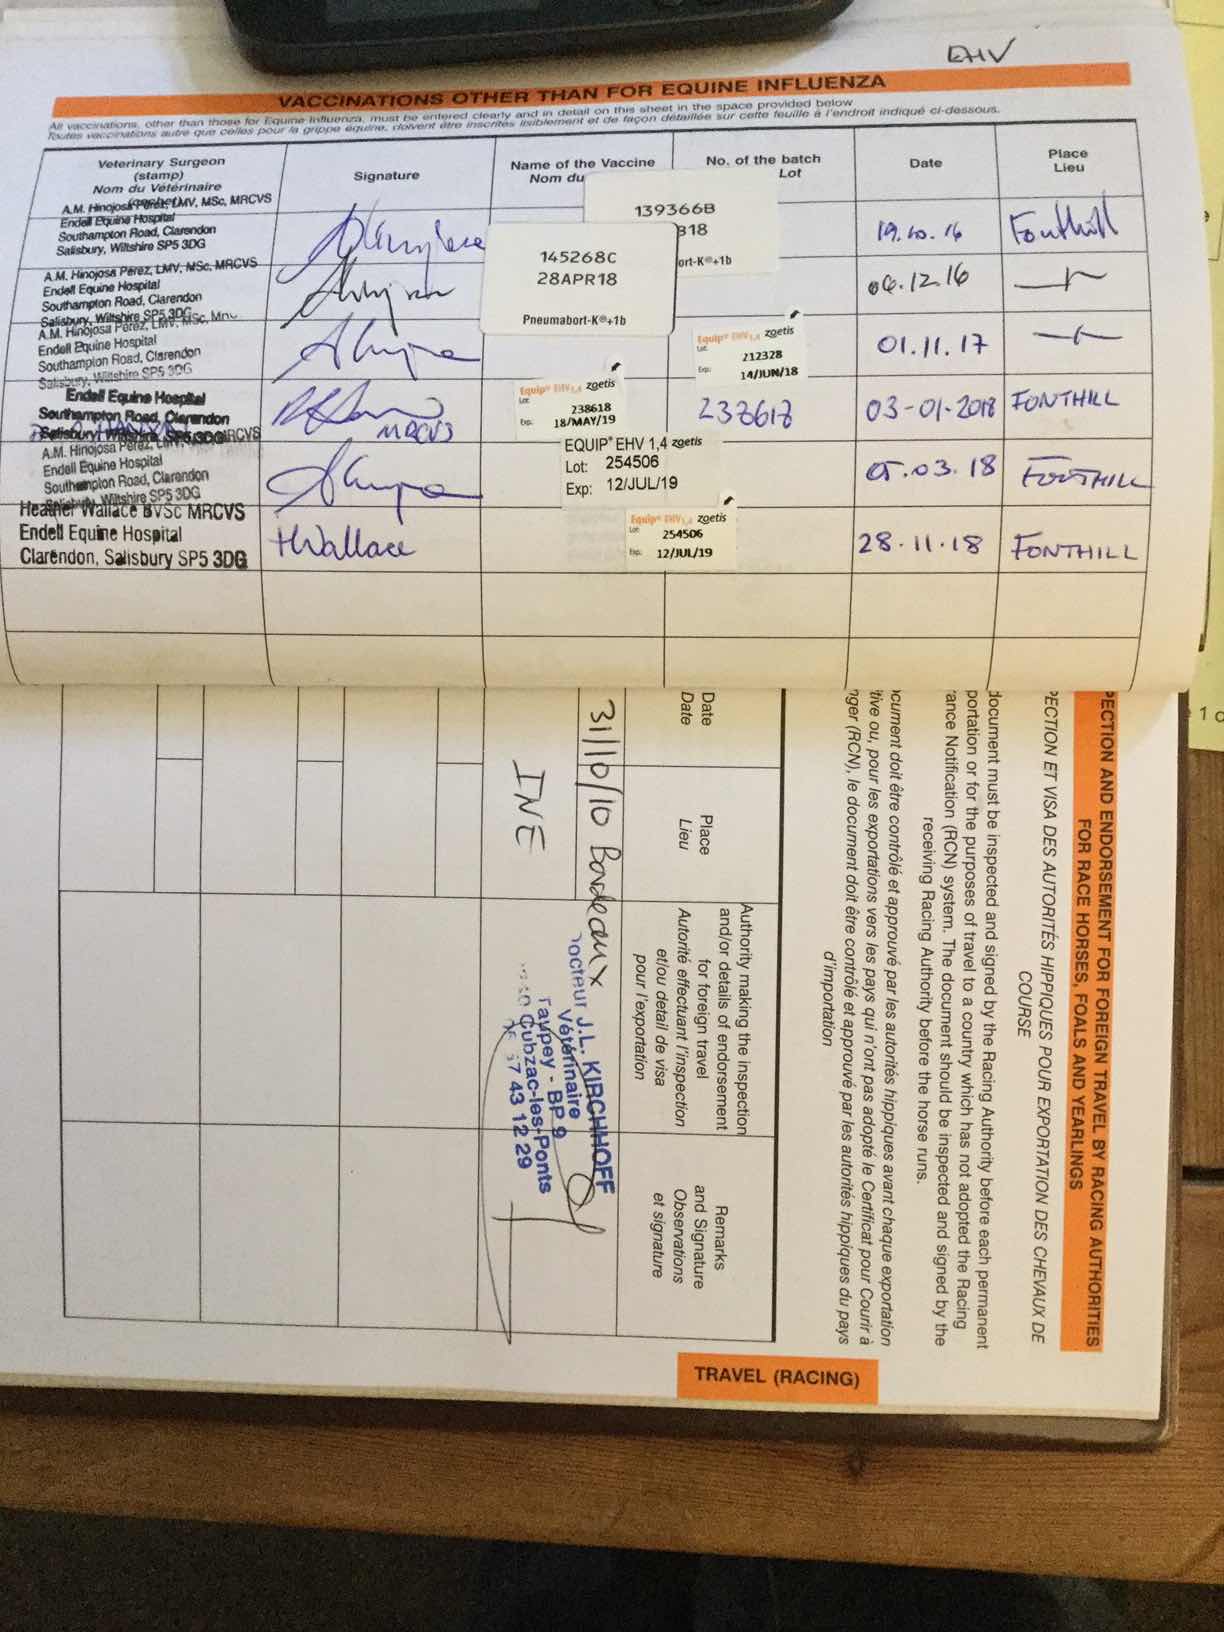 EHV
VACCINATIONS OTHER THAN FOR EQUINE INFLUENZA
All vaccinations, other than those for Equine Influenza, must be entered clearly and in detail on this sheet in the space provided below
Toutes vaccinations autre que celles pour la grippe équine, doivent être inscrites lisiblement et de façon détaillée sur cette feuille à l'endroit indiqué ci-dessous.
Veterinary Surgeon
(stamp)
Nom du Vétérinaire
Signature
Name of the Vaccine
Nom du
No. of the batch
Lot
Date
Place
Lieu
A.M. Hinojosa Perez, LMV, MSc, MRCVS
Endell Equine Hospital
Southampton Road, Clarendon
Salisbury, Wiltshire SP5 3DG
139366B
318
ort-K®+1b
19.10.16
Fonthill
A.M. Hinojosa Perez, LMV, MSc, MRCVS
Endell Equine Hospital
Southampton Road, Clarendon
Salisbury, Wiltshire SP5 3DG
145268C
28APR18
Pneumabort-K®+1b
06.12.16
A.M. Hinojosa Perez, LMV, MSc,
Endell Equine Hospital
Southampton Road, Clarendon
Salisbury, Wiltshire SP5 3DG
Equip® EHV1,4 zoetis
Lot:
212328
Exp: 14/JUN/18
01.11.17
Endell Equine Hospital
Southampton Road, Clarendon
Salisbury, Wiltshire SP5 3DG
MRCVS
Equip® EHV1,4 zoetis
Lot:
238618
Exp: 18/MAY/19
238618
03-01-2018
FONTHILL
A.M. Hinojosa Perez, LMV, MRCVS
Endell Equine Hospital
Southampton Road, Clarendon
Salisbury, Wiltshire SP5 3DG
EQUIP® EHV 1,4 zoetis
Lot: 254506
Exp: 12/JUL/19
05.03.18
FONTHILL
Heather Wallace BVSc MRCVS
Endell Equine Hospital
Clarendon, Salisbury SP5 3DG
HWallace
Equip® EHV1,4 zoetis
Lot:
254506
Exp: 12/JUL/19
28.11.18
FONTHILL
PECTION AND ENDORSEMENT FOR FOREIGN TRAVEL BY RACING AUTHORITIES
FOR RACE HORSES, FOALS AND YEARLINGS
PECTION ET VISA DES AUTORITÉS HIPPIQUES POUR EXPORTATION DES CHEVAUX DE
COURSE
document must be inspected and signed by the Racing Authority before each permanent
portation or for the purposes of travel to a country which has not adopted the Racing
ance Notification (RCN) system. The document should be inspected and signed by the
receiving Racing Authority before the horse runs.
cument doit être contrôlé et approuvé par les autorités hippiques avant chaque exportation
tive ou, pour les exportations vers les pays qui n'ont pas adopté le Certificat pour Courir à
nger (RCN), le document doit être contrôlé et approuvé par les autorités hippiques du pays
d'importation
Date
Date
Place
Lieu
Authority making the inspection
and/or details of endorsement
for foreign travel
Autorité effectuant l'inspection
et/ou detail de visa
pour l'exportation
Remarks
and Signature
Observations
et signature
31/10/10 Bordeaux
INE
octeur J.L. KIRCHHOFF
Vétérinaire
Taupey - BP 9
Cubzac-les-Ponts
57 43 12 29
TRAVEL (RACING)